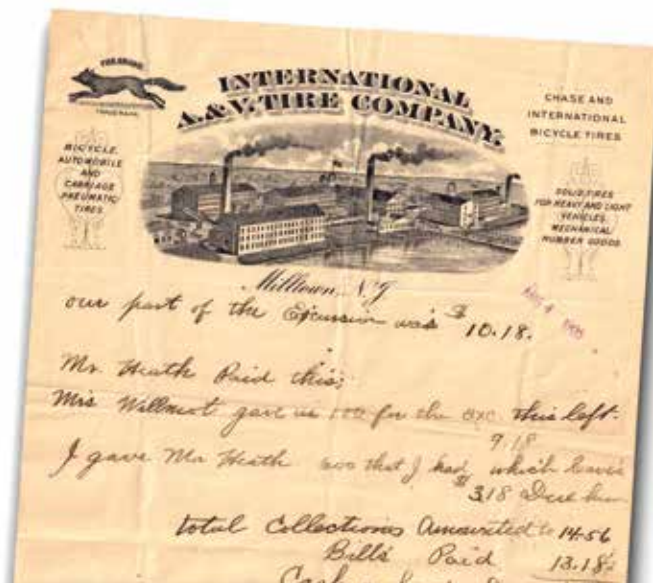 THE CHASE
TRADE MARK
INTERNATIONAL
A. & V. TIRE COMPANY.
BICYCLE,
AUTOMOBILE
AND
CARRIAGE
PNEUMATIC
TIRES
CHASE AND
INTERNATIONAL
BICYCLE TIRES
SOLID TIRES
FOR HEAVY AND LIGHT
VEHICLES
MECHANICAL
RUBBER GOODS
Milltown, N.J.
our part of the Excursion was $ 10.18.
Mr. Heath Paid this;
Mis Willmot gave us 100 for the exc. this left.
9.18
I gave Mr Heath 600 that I had which leaves
$ 3.18 Due him
total Collections Amounted to 14.56
Bills Paid 13.18